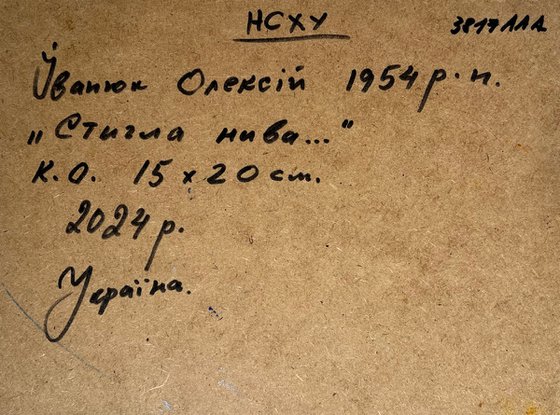 НСХУ
3817ААА
Іванюк Олексій 1954 р. н.
„Стигла нива..."
К.О. 15 x 20 см.
2024 р.
Україна.